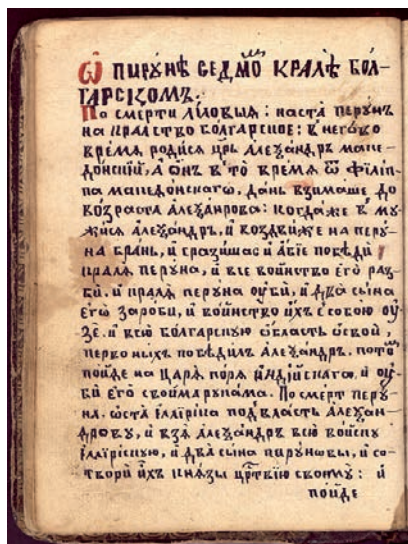 Ѡ пирꙋнѣ седмомъ кралѣ бол-
гарскомъ.
По смерти лїловыя: наста перꙋнъ
на кралство болгарское: в' негово
время родися цр҃ь алеѯандръ маке-
донскїй, а онъ в' то время ѿ фїліп-
па македонскаго, дань взимаше до
возраста алеѯанрова: когда же в' мꙋ-
жися алеѯандръ, и воздвиже на перꙋ-
на брань, и сразишас и абїе побѣди
краля перꙋна, и все воинство его раз-
би. и краля перꙋна ѹби, и два сына
его зароби, и воинство ихъ с собою ѹ-
зе. и всю болгарскꙋю область ѹсвои,
перво ныхъ побѣдилъ алеѯандръ. пото
пойде на царя пора индїйскаго. и ѹ-
би его своима рꙋкама. По смерт перꙋ-
на. ѡста їлаїрика под власть алеѯан-
дровꙋ, и взя алеѯандръ всю войскꙋ
їлаїрискꙋю, и два сына пирꙋновы, и со-
твори ихъ князы црт҃вїю своемꙋ: и
пойде